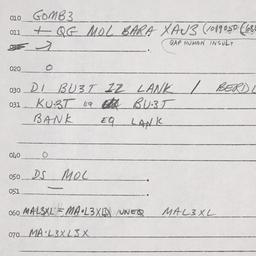 010 GOMB3
011 + QG MOL BARA XAU3 (1049050
GAP HUMAN INSULT
020 0
030 DI BU3T 22 LANK / BERDL
031 KU3T EQ BU3T
BANK EQ LANK
040 0
050 DS MOL
051 —
060 MAL3XL = MA•L3XL UNEQ MAL3XL
070 MA•L3XL3X